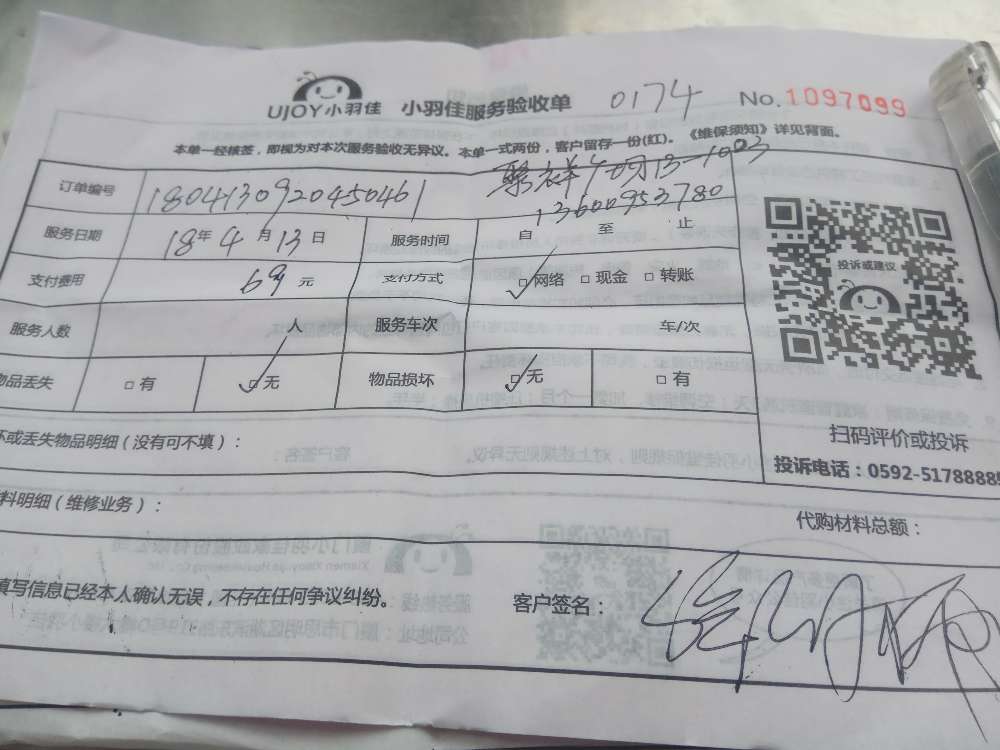 UJOY小羽佳 小羽佳服务验收单 0174 No.1097099
本单一经核签，即视为对本次服务验收无异议。本单一式两份，客户留存一份(红)。《维保须知》详见背面。
订单编号 1804130920450461 13-1003
13600953780
服务日期 18年4月13日 服务时间 自 至 止
支付费用 69元 支付方式 ☑网络 □现金 □转账
投诉或建议
服务人数 人 服务车次 车/次
物品丢失 □有 ☑无 物品损坏 ☑无 □有
坏或丢失物品明细（没有可不填）：
扫码评价或投诉
投诉电话：0592-5178888
料明细（维修业务）：
代购材料总额：
填写信息已经本人确认无误，不存在任何争议纠纷。 客户签名：